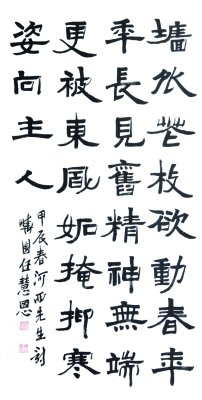 墻外花枝欲動春年
年長見舊精神無端
更被東風妬掩抑寒
姿向主人
甲辰春河西先生詩
任慧恩